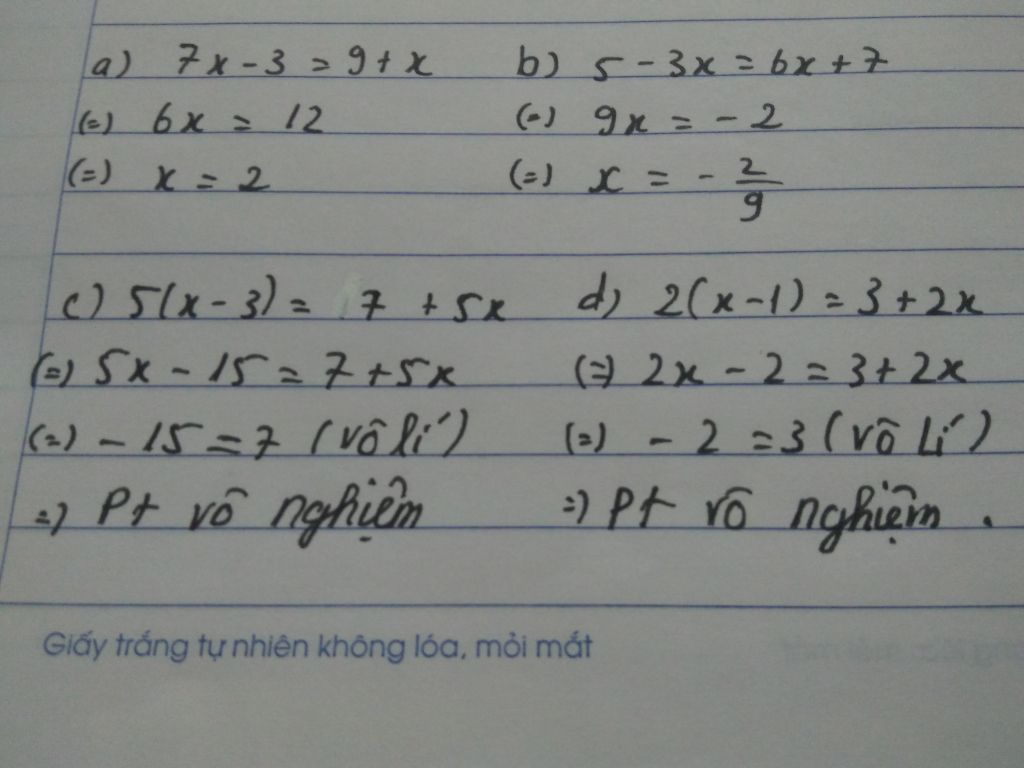 a) 7x - 3 = 9 + x
(=) 6x = 12
(=) x = 2
b) 5 - 3x = 6x + 7
(=) 9x = - 2
(=) x = - 2/9
c) 5(x - 3) = 7 + 5x
(=) 5x - 15 = 7 + 5x
(=) - 15 = 7 (vô lí)
=) Pt vô nghiệm
d) 2(x - 1) = 3 + 2x
(=) 2x - 2 = 3 + 2x
(=) - 2 = 3 (vô lí)
=) Pt vô nghiệm .
Giấy trắng tự nhiên không lóa, mỏi mắt